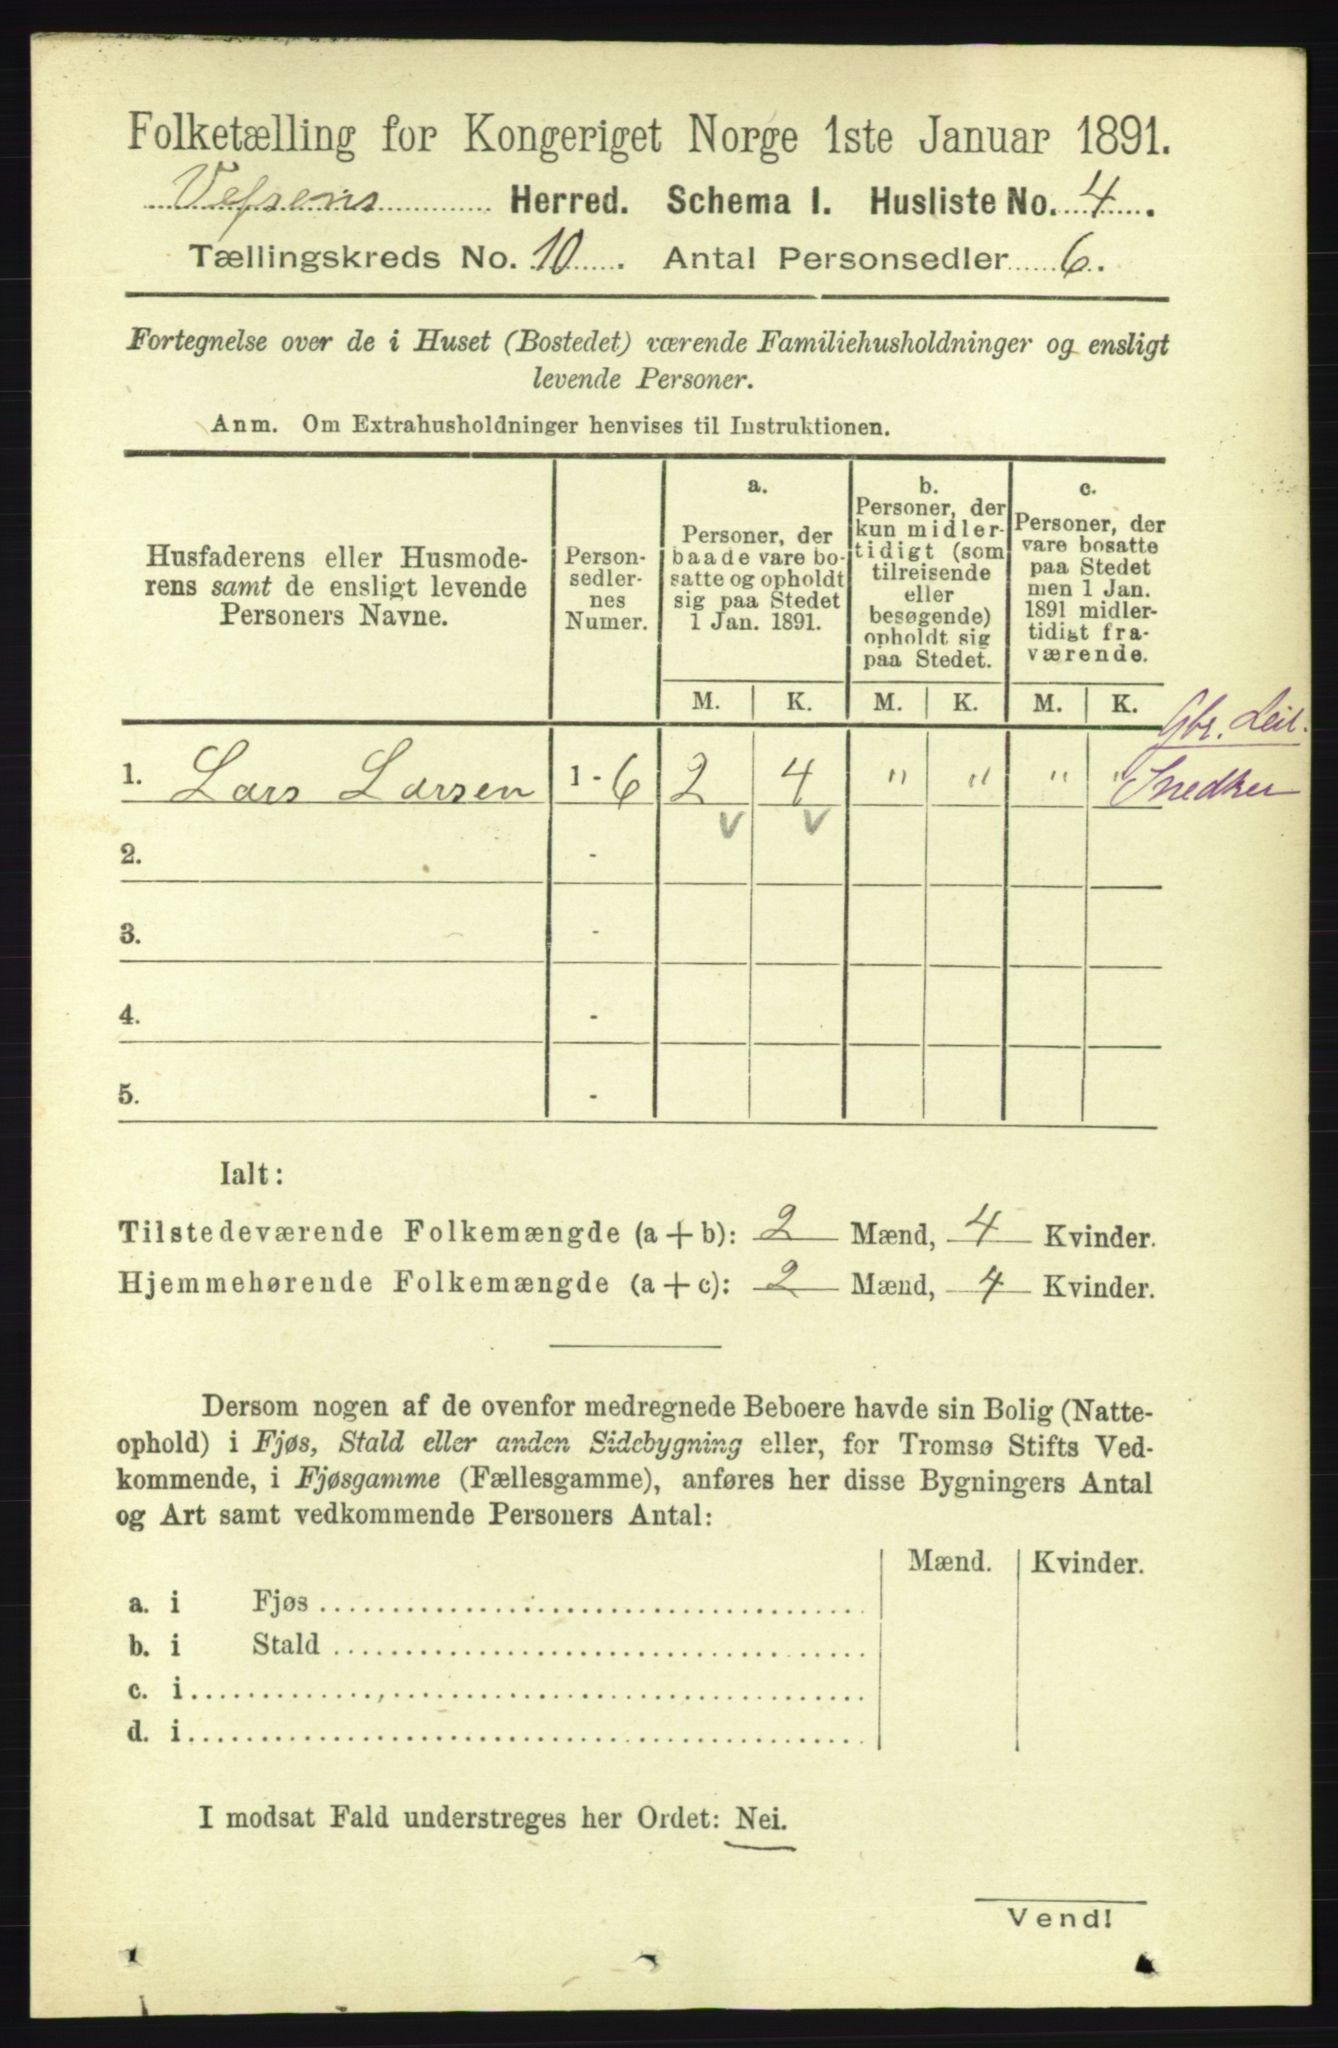 Folketælling for Kongeriget Norge 1ste Januar 1891.
Vefsens Herred. Schema I. Husliste No. 4.
Tællingskreds No. 10. Antal Personsedler 6.
Fortegnelse over de i Huset (Bostedet) værende Familiehusholdninger og ensligt
levende Personer.
Anm. Om Extrahusholdninger henvises til Instruktionen.
Husfaderens eller Husmode-
rens samt de ensligt levende
Personers Navne.
Person-
sedler-
nes
Numer.
a.
Personer, der
baade vare bo-
satte og opholdt
sig paa Stedet
1 Jan. 1891.
b.
Personer, der
kun midler-
tidigt (som
tilreisende
eller
besøgende)
opholdt sig
paa Stedet.
c.
Personer, der
vare bosatte
paa Stedet
men 1 Jan.
1891 midler-
tidigt fra-
værende.
M. K. M. K. M. K.
Gbr. Leil.
1. Lars Larsen 1 - 6 2 4 " " " " Snedker
v v
2. -
3. -
4. -
5. -
Ialt:
Tilstedeværende Folkemængde (a + b): 2 Mænd, 4 Kvinder.
Hjemmehørende Folkemængde (a + c): 2 Mænd, 4 Kvinder.
Dersom nogen af de ovenfor medregnede Beboere havde sin Bolig (Natte-
ophold) i Fjøs, Stald eller anden Sidebygning eller, for Tromsø Stifts Ved-
kommende, i Fjøsgamme (Fællesgamme), anføres her disse Bygningers Antal
og Art samt vedkommende Personers Antal:
Mænd. Kvinder.
a. i Fjøs
b. i Stald
c. i
d. i
I modsat Fald understreges her Ordet: Nei.
Vend!